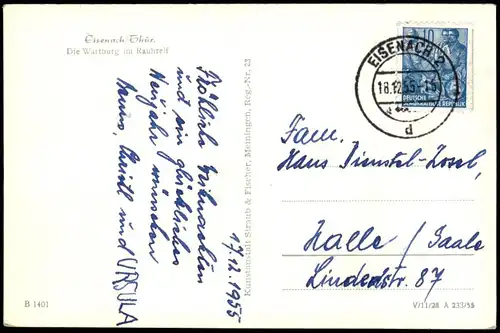 Eisenach/Thür.
Die Wartburg im Rauhreif
Fröhliche Weihnachten
und ein glückliches
Neujahr wünschen
Christl und URSULA
17.12.1955
Kunstanstalt Straub & Fischer, Meiningen, Reg.-Nr. 23
B 1401
10
DEUTSCHE
DEMOKRATISCHE REPUBLIK
EISENACH 2
18.12.55
d
Fam.
Hans Dienstel-Zosel,
Halle/Saale
Lindenstr. 87
V/11/28 A 233/55